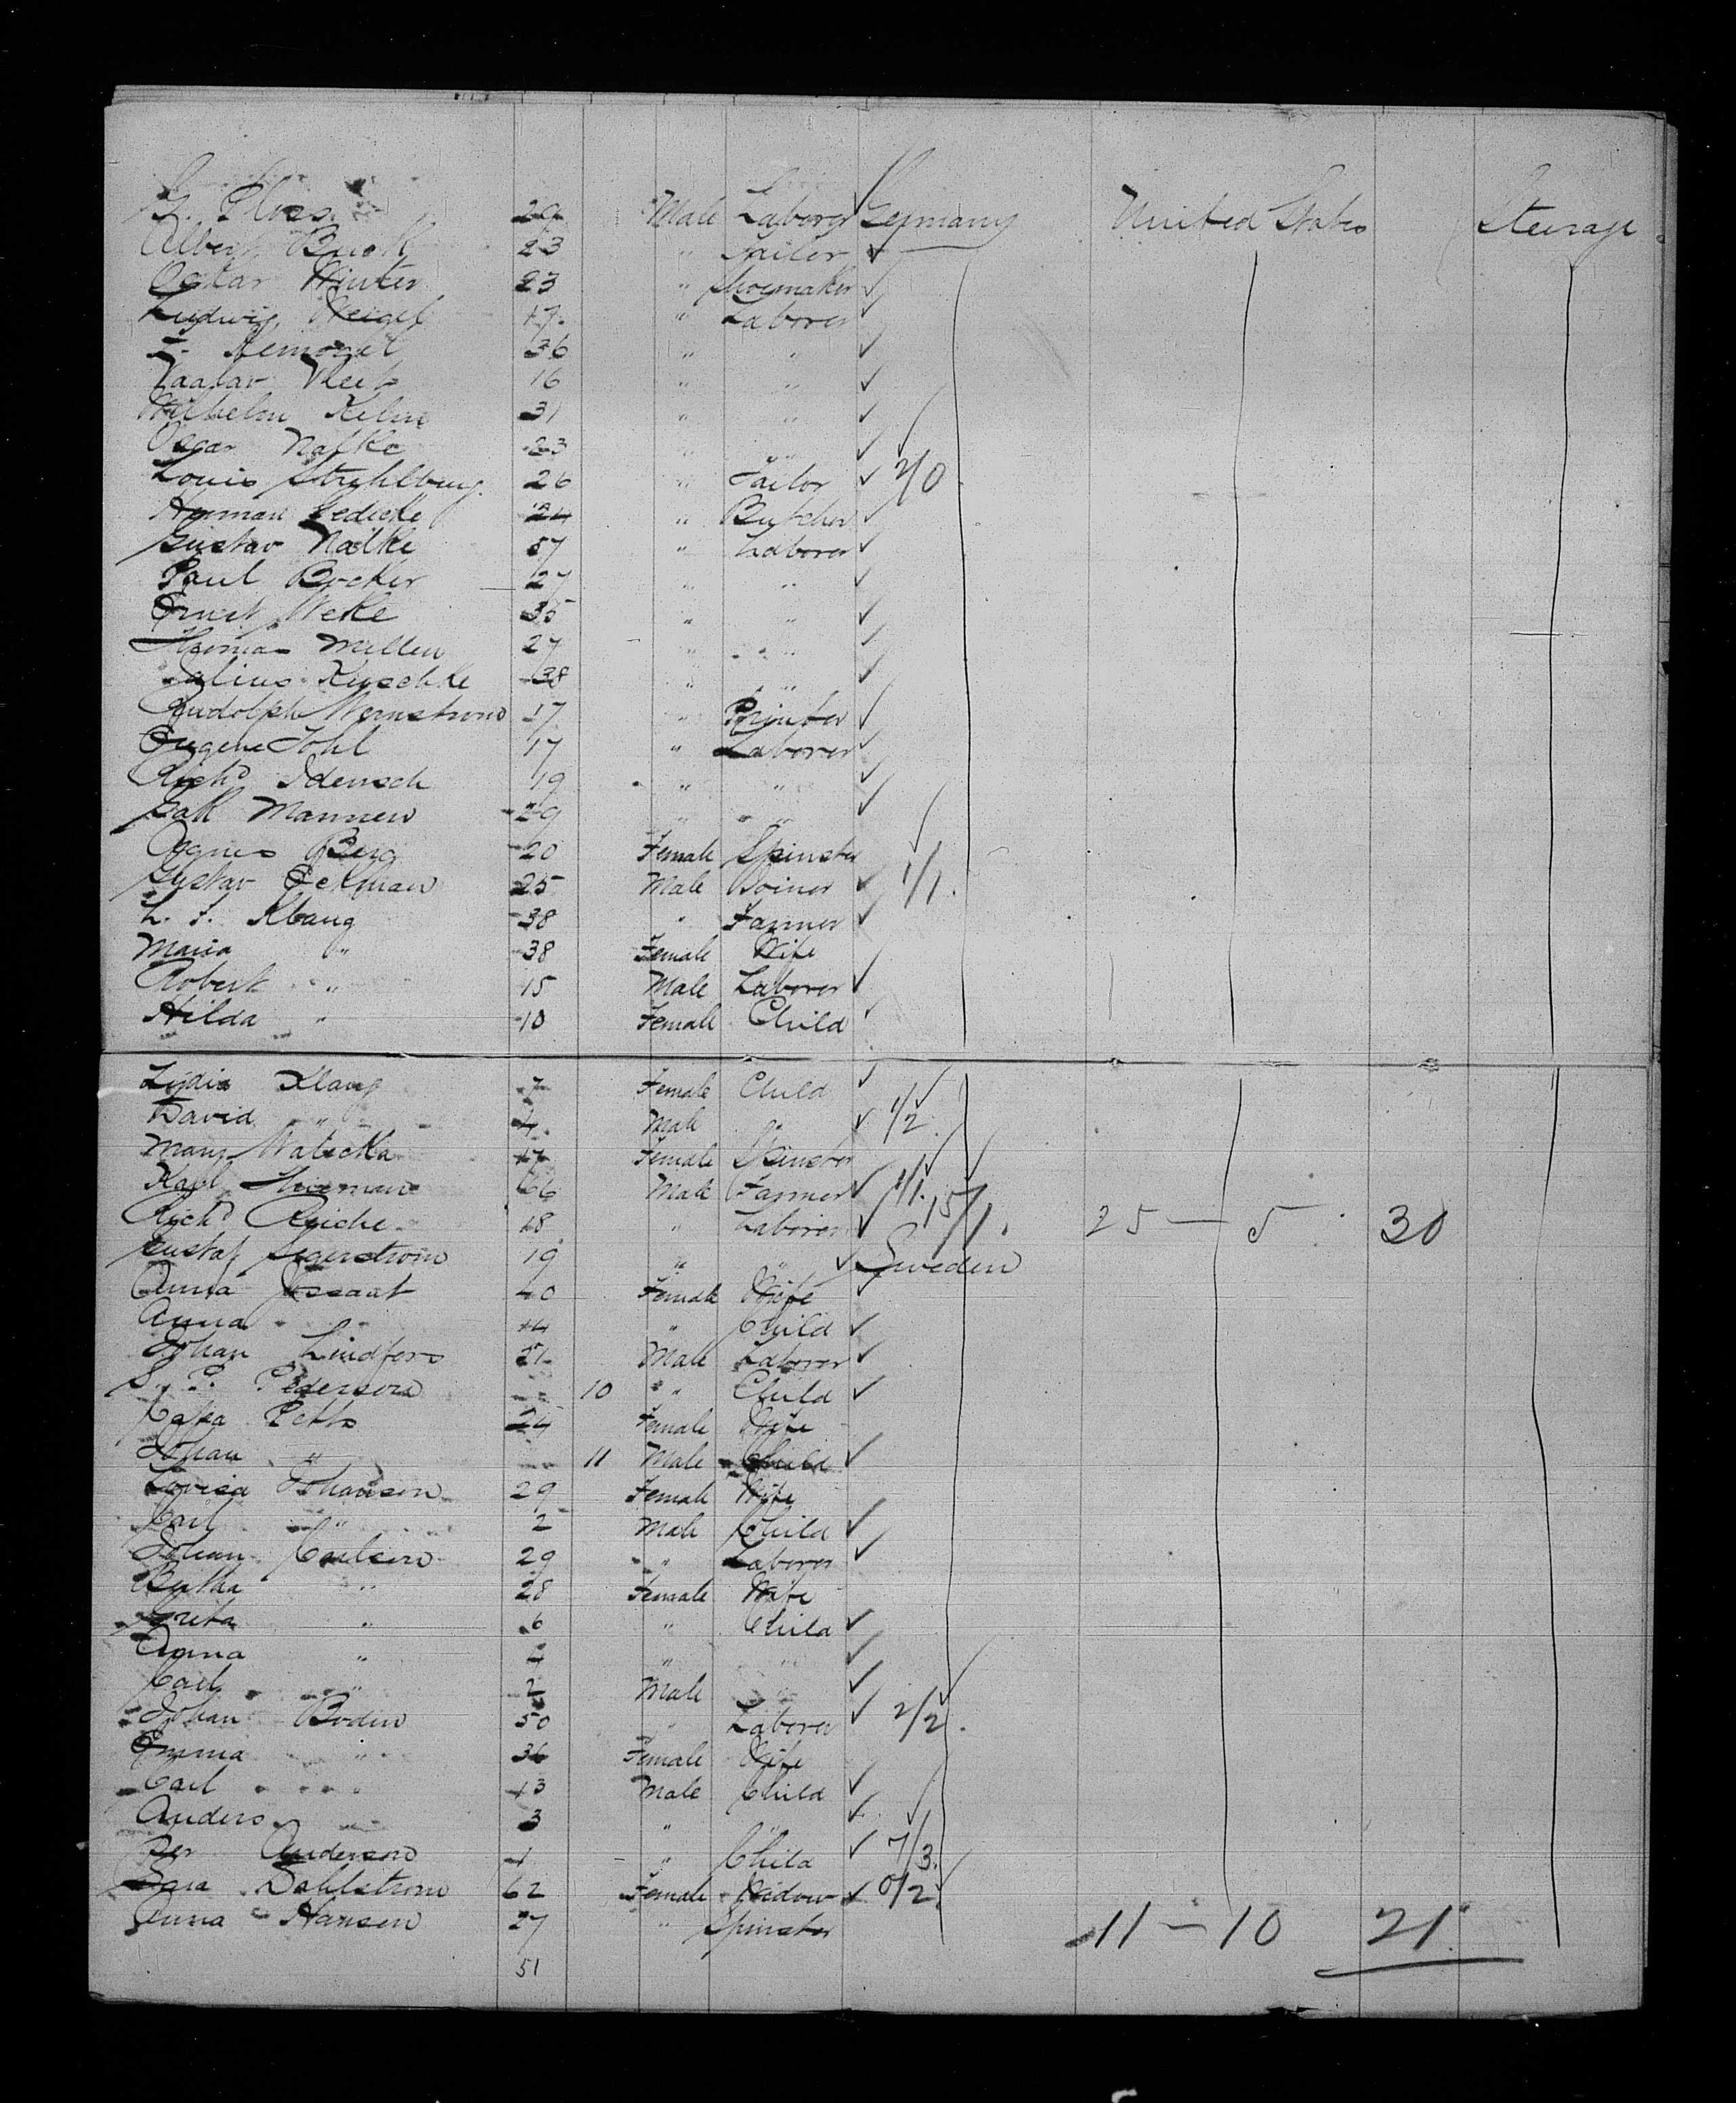 G. Ploss 29 Male Laborer Germany United States Steerage
Albert Busch 23 " Tailor
Oskar Winter 23 " Shoemaker
Ludwig Weigel 19 " Laborer
36 " "
16 " "
Wilhelm 31 " "
Oscar Natke 23 " "
Louis Strehlburg 26 " Tailor 2/0
Herman Dedicke 24 " Butcher
Gustav Natke 57 " Laborer
Paul Bocker 27 " "
Ernst Weke 35 " "
Herman Millen 27 " "
Julius Kuschke 38 " "
Rudolph 17 " Printer
Eugene Tohl 17 " Laborer
Richd 19 " "
Mannew 29 " "
Agnes Berg 20 Female Spinster
Gustav Eckman 25 Male Joiner 1/1.
L. F. Klang 38 " Farmer
Maria " 38 Female Wife
Robert " 15 Male Laborer
Hilda " 10 Female Child
Lydia Klang 7 Female Child
David " 4 Male " 1/2.
Mary Watecka 17 Female Spinster
Karl Herman 66 Male Farmer 1/1.
Richd Reiche 18 " Laborer 5/1. 25 — 5 30
Gustaf Segerstrom 19 " " Sweden
Anna Jossaat 40 Female Wife
Anna " 14 " Child
Johan Lindfors 21 Male Laborer
S. P. Pederson 10 " Child
Petts 24 Female Wife
Johan " 11 Male Child
Lovisa Johanson 29 Female Wife
Carl " 2 Male Child
Johan Carlson 29 " Laborer
Butha " 28 Female Wife
Greta " 6 " Child
Anna " 4 " "
Carl " 2 Male "
Johan Bodin 50 " Laborer 2/2.
Emma " 36 Female Wife
Carl " 13 Male Child
Anders " 3 " "
Per Anderson 1 " Child 7/3.
Sara Dahlstrom 62 Female Widow 0/2.
Anna Hansen 27 " Spinster 11 — 10 21.
51